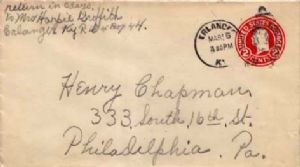 return in 5 days.
to Mrs Harrie Griffith
Erlanger Ky. R.D. 4 Box 44.
ERLANGER
MAR 5
3 30PM
KY.
UNITED STATES
2 CENTS 2
Henry Chapman
333 South 16th St.
Philadelphia. Pa.